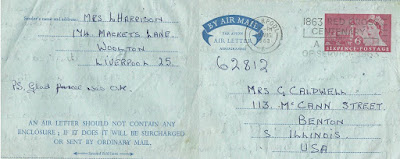 Sender's name and address:
MRS L HARRISON
174, MACKETS LANE,
WOOLTON
LIVERPOOL 25.
PS. Glad
AN AIR LETTER SHOULD NOT CONTAIN ANY
ENCLOSURE; IF IT DOES IT WILL BE SURCHARGED
OR SENT BY ORDINARY MAIL.
BY AIR MAIL
AIR LETTER
1863 RED
CENTENARY
SIXPENCE POSTAGE
62812
MRS G CALDWELL
113, McCANN STREET
BENTON
S ILLINOIS.
USA